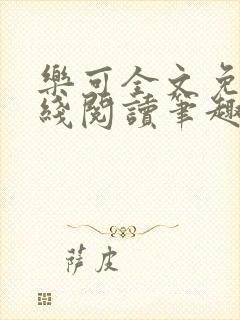 樂可全文免
綫閱讀筆趣
薩皮